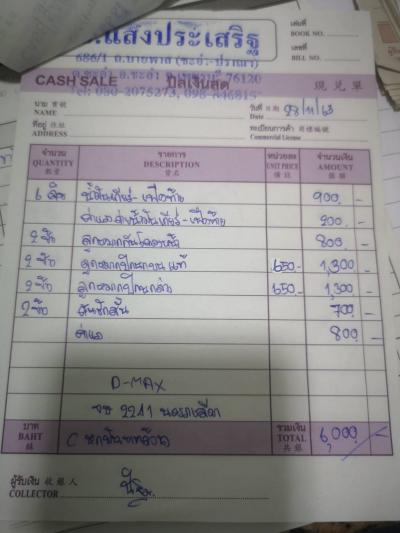 แสงประเสริฐ
686/1 ถ.นายพาส (ชะอำ-ปราณา)
อ.ชะอำ 76120
Tel: 080-2075273
เล่มที่
BOOK NO.
เลขที่
BILL NO.
CASH SALE บิลเงินสด 現兌單
นาม 寶號
NAME
วันที่ 日期 28/11/63
Date
ที่อยู่ 住址
ADDRESS
ทะเบียนการค้า 商標編號
Commercial License
จำนวน รายการ หน่วยละ จำนวนเงิน
QUANTITY DESCRIPTION UNIT PRICE AMOUNT
数量 貨名 價目 金額
6 ลิตร น้ำมันเกียร์-เฟืองท้าย 900.-
ค่าแรงถ่ายน้ำมันเกียร์-เฟืองท้าย 200.-
2 ชิ้น ลูกหมากกันโคลง 800.-
2 ชิ้น ลูกหมากปีกนกบนแท้ 650.- 1,300.-
2 ชิ้น ลูกหมากปีกนกล่าง 650.- 1,300.-
2 ชิ้น คันชักสั้น 700.-
ค่าแรง 800.-
D-MAX
2241
บาท รวมเงิน
BAHT C หกพันบาทถ้วน TOTAL 6,000.-
銖 共銀
ผู้รับเงิน 收銀人
COLLECTOR